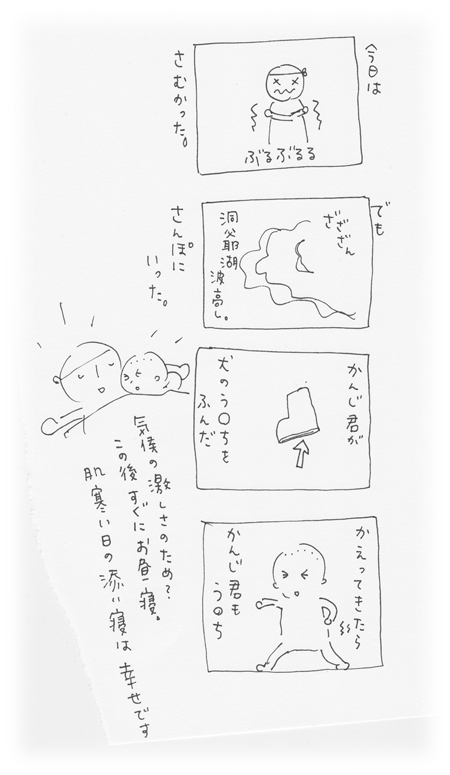 今日は
ぶるぶるる
さむかった。
でも
ざざざん
洞爺湖
波高し。
さんぽに
いった。
かんじ君が
犬のう〇ちを
ふんだ
かえってきたら
かんじ君も
う〇ち
気候の激しさのため?
この後すぐにお昼寝。
肌寒い日の添い寝は幸せです